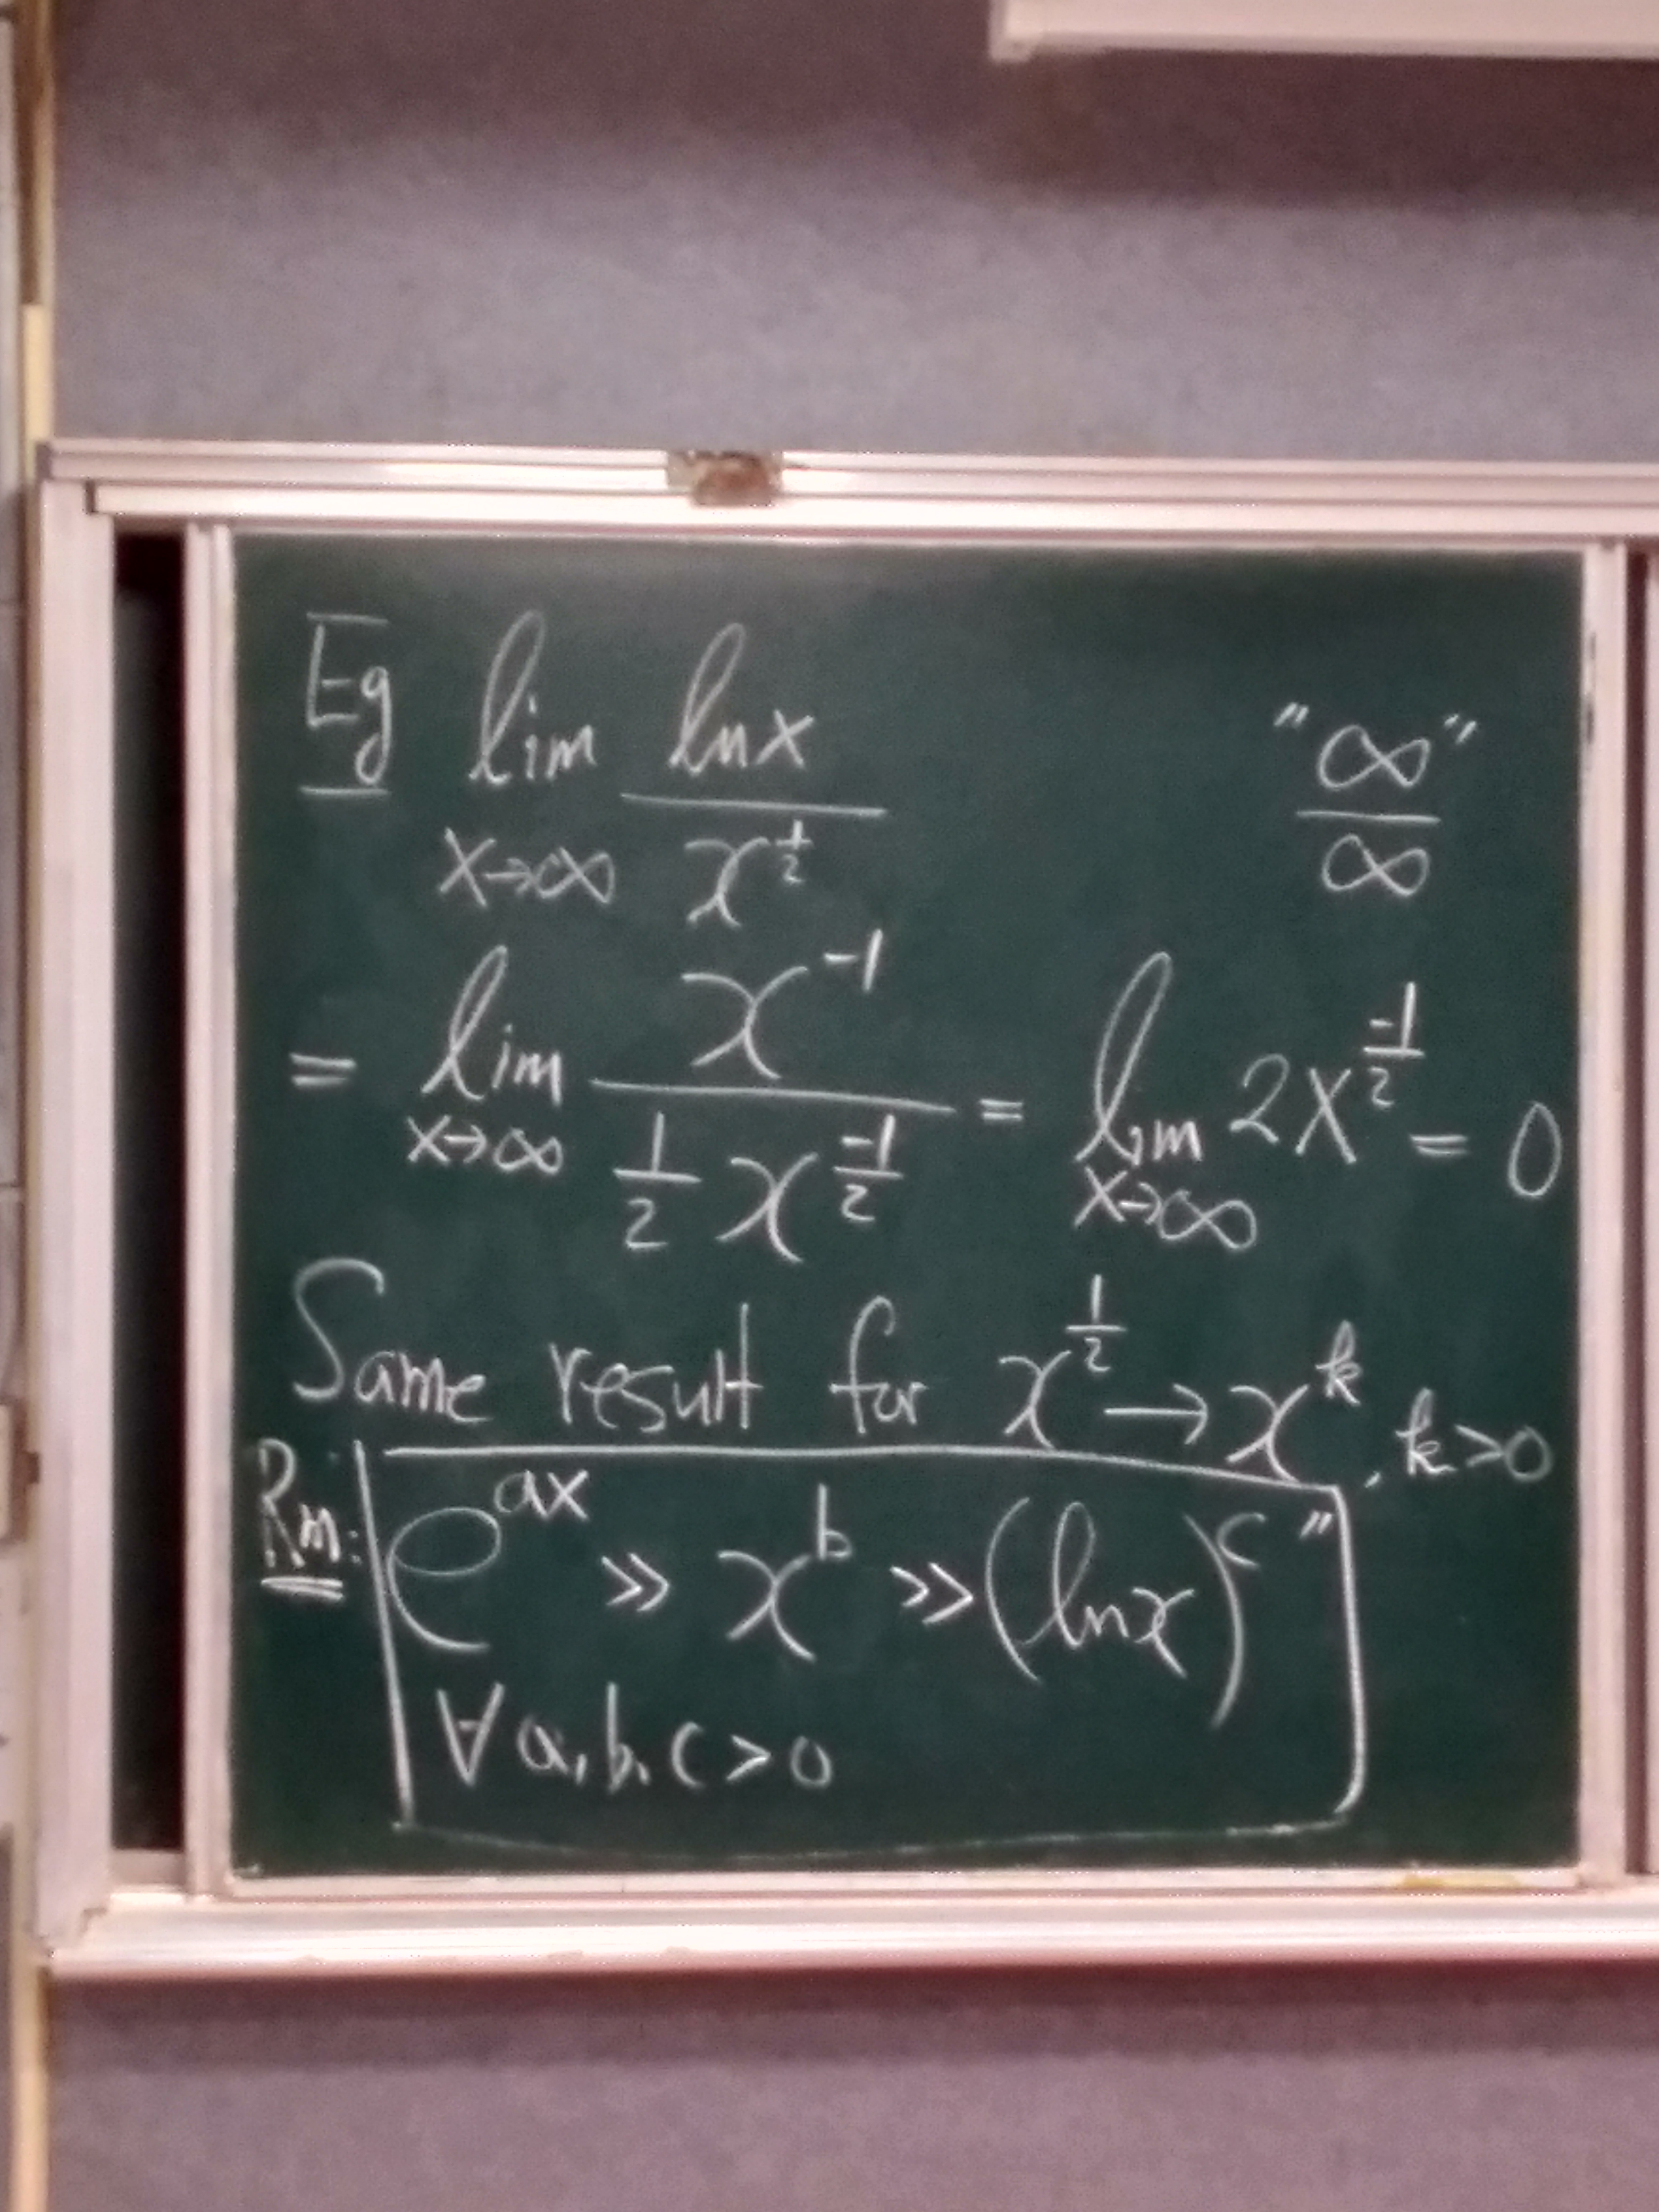 Eg lim x→∞ ln x / x^{1/2} "∞/∞"
= lim x→∞ x^{-1} / (1/2 x^{-1/2}) = lim x→∞ 2x^{-1/2} = 0
Same result for x^{1/2} → x^k, k>0
Rm: e^{ax} ≫ x^b ≫ (ln x)^c "
∀ a, b, c > 0